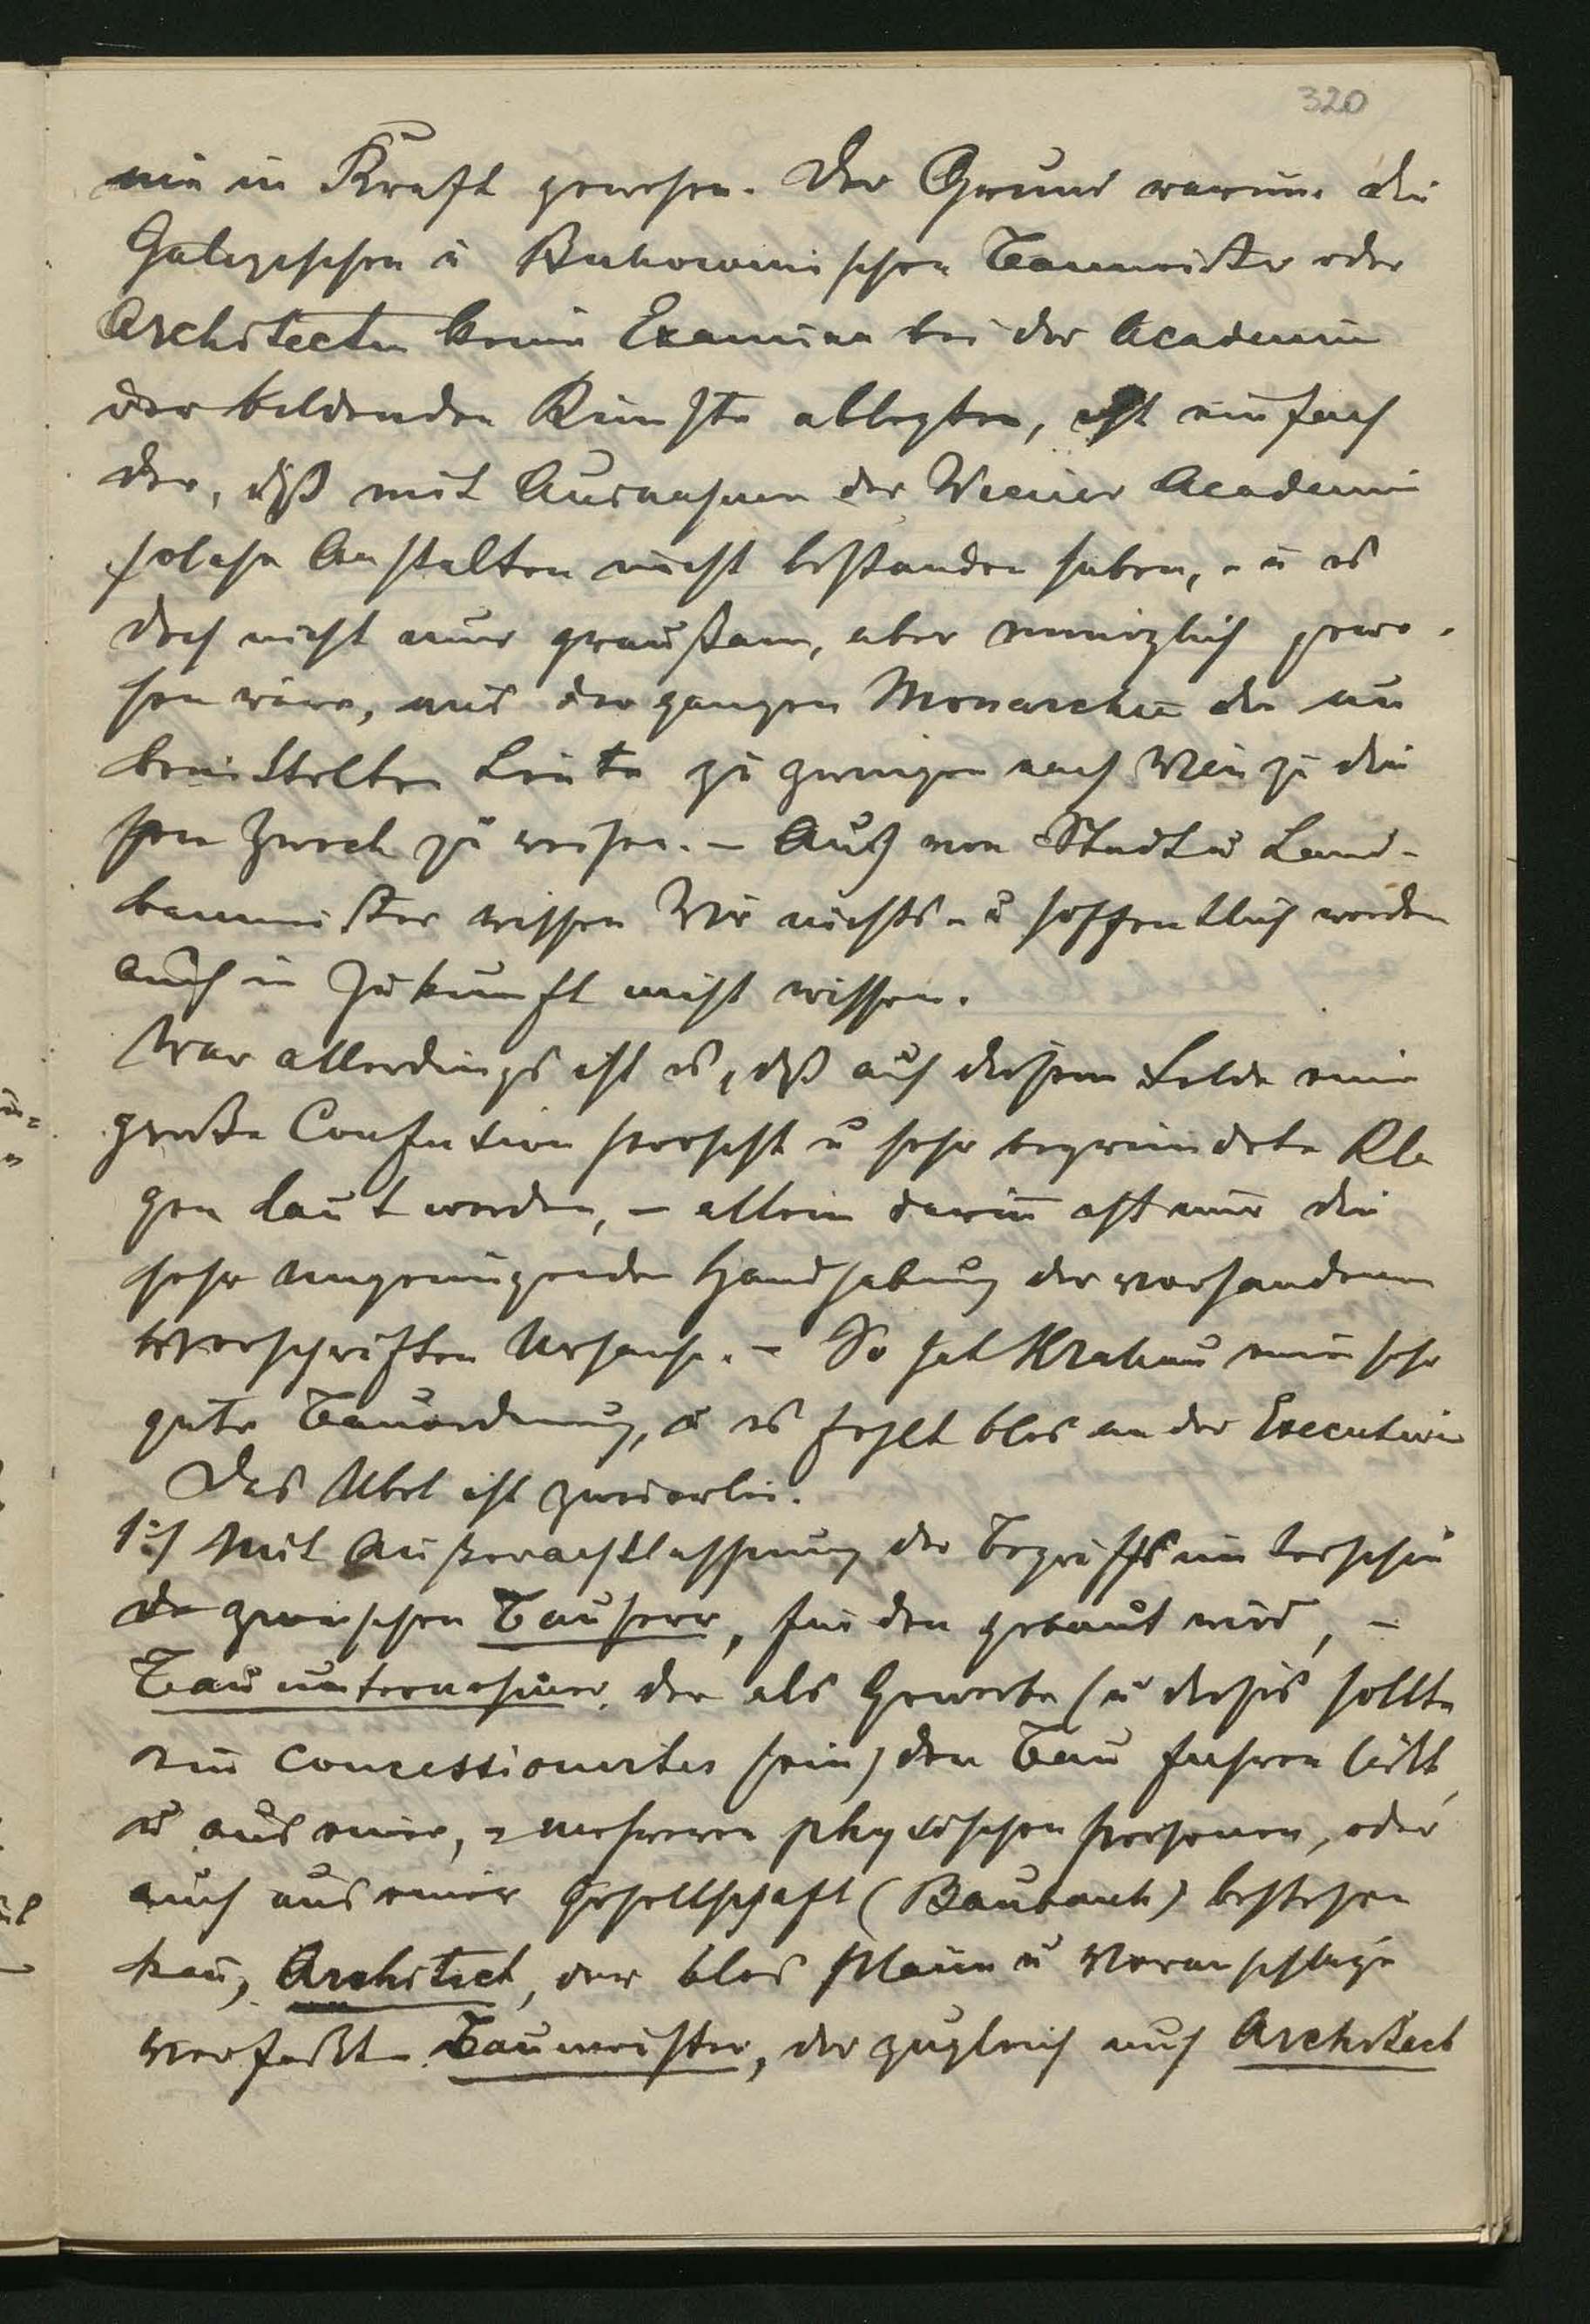 320
nie in Kraft gewesen. Der Grund warum die
Galizischen u Bukowinischen Baumeister oder
Architecten keine Examina bei der Academie
der bildenden Künste ablegten, ist einfach
der, daß mit Ausnahme der Wiener Academie
solche Anstalten nicht bestanden haben, - u es
doch nicht nur grausam, aber unmöglich gewe-
sen wäre, aus der ganzen Monarchie die un
bemittelten Leute zu zwingen nach Wien zu die
sem Zweck zu reisen. - Auch von Stadt u Land-
baumeister wissen Wir nichts - u hoffentlich werden
auch in Zukunft nicht wissen.
War allerdings ist es, daß auf diesem Felde eine
große Confusion herrscht u sehr begründete Kla
gen laut werden, - allein darin ist nur die
sehr ungenügende Handhabung der vorhandenen
Vorschriften Ursache. - So hat Krakau eine sehr
gute Bauordnung, u es fehlt blos an der Executive
Das Übel ist zweierlei.
1:/ Mit Außerachtlassung der Begriffsunterschie
de zwischen Bauherr, für den gebaut wird, -
Bauunternehmer, der als Gewerbe (u dieses sollte
ein concessionirtes sein) den Bau führen läßt,
u aus einer, - mehreren physischen Personen, oder
auch aus einer Gesellschaft (Baubank) bestehen
kan, Architect, der blos Pläne u Voranschläge
verfaßt Baumeister, der zugleich auch Architect